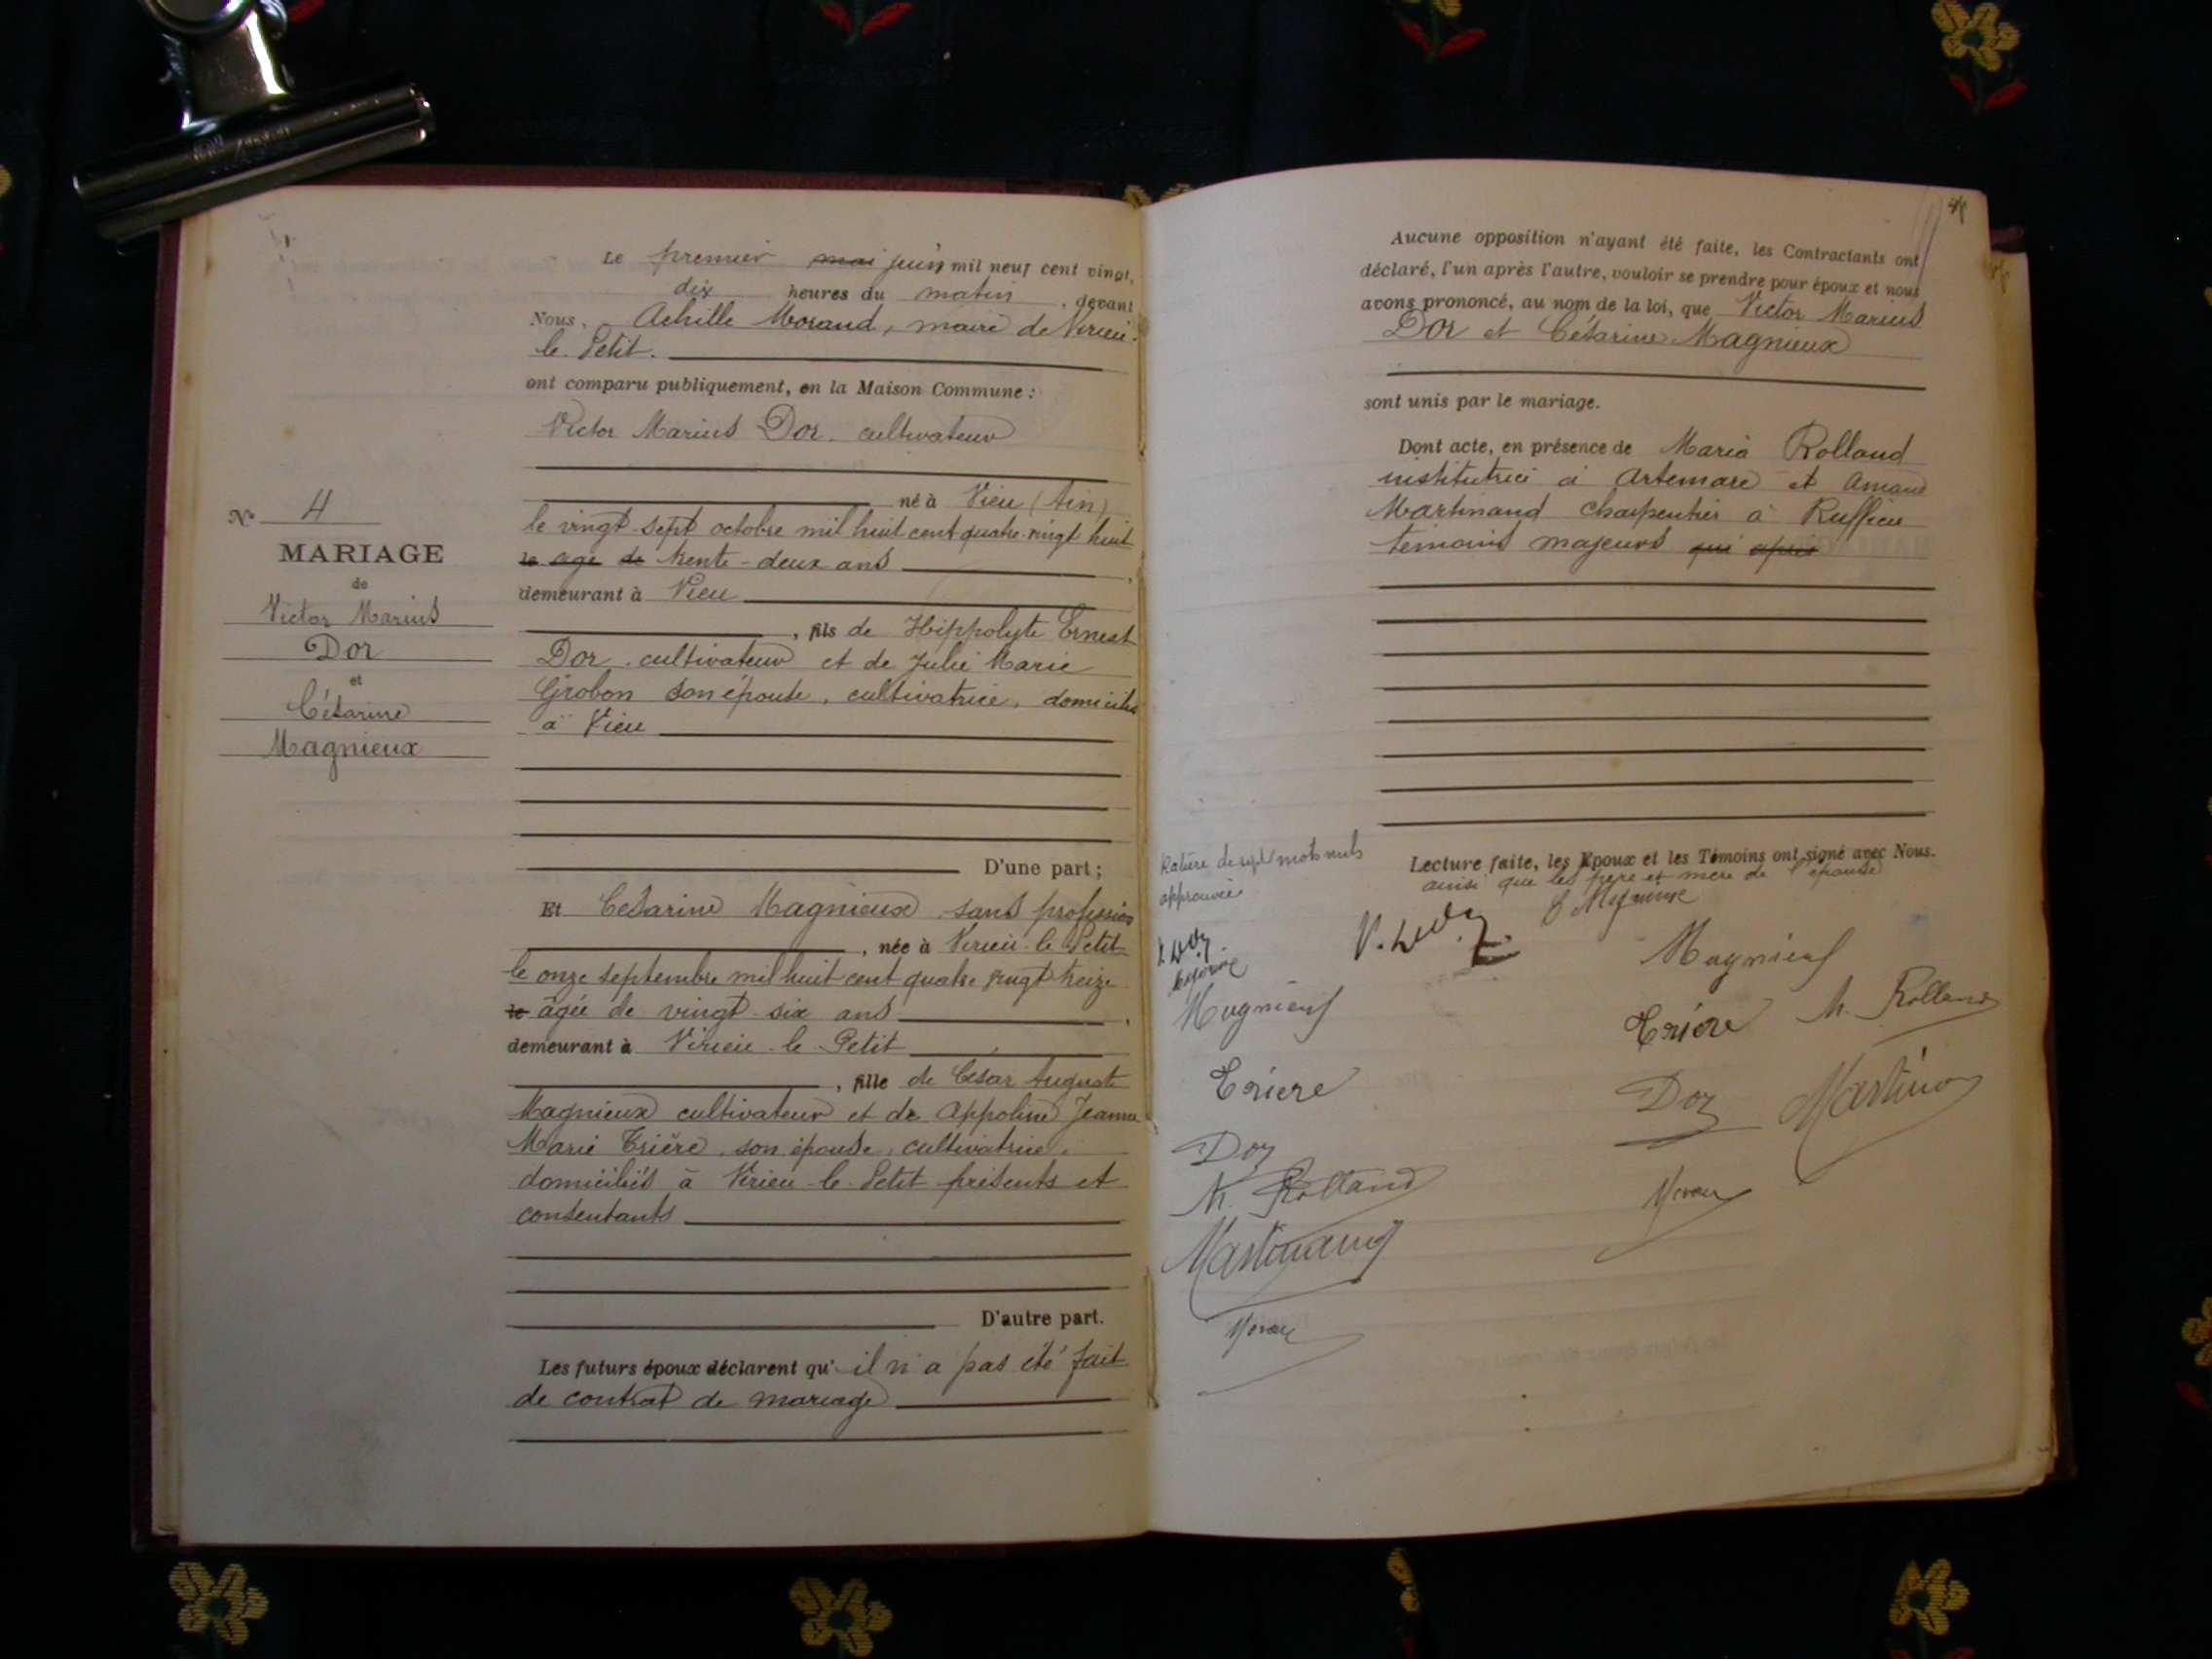 Le premier mai juin mil neuf cent vingt,
dix heures du matin, devant
Nous, Achille Morand, maire de Virieu-
le-Petit.
ont comparu publiquement, en la Maison Commune :
Victor Marius Dor, cultivateur
né à Vieu (Ain)
le vingt-sept octobre mil huit cent quatre-vingt huit
le age de trente-deux ans,
demeurant à Vieu
, fils de Hippolyte Ernest
Dor, cultivateur et de Julie Marie
Grobon son épouse, cultivatrice, domiciliés
à Vieu
D'une part ;
Et Césarine Magnieux, sans profession
, née à Virieu-le-Petit
le onze septembre mil huit cent quatre vingt treize
le âgée de vingt-six ans,
demeurant à Virieu-le-Petit
, fille de César Auguste
Magnieux cultivateur et de Appoline Jeanne
Marie Trière, son épouse, cultivatrice,
domiciliés à Virieu-le-Petit présents et
consentants
D'autre part.
Les futurs époux déclarent qu'il n'a pas été fait
de contrat de mariage
N° 4
MARIAGE
de
Victor Marius
Dor
et
Césarine
Magnieux
Aucune opposition n'ayant été faite, les Contractants ont
déclaré, l'un après l'autre, vouloir se prendre pour époux et nous
avons prononcé, au nom de la loi, que Victor Marius
Dor et Césarine Magnieux
sont unis par le mariage.
Dont acte, en présence de Maria Rolland
institutrice à Artemare et Amand
Martinand charpentier à Ruffieu
témoins majeurs qui après
Lecture faite, les Epoux et les Témoins ont signé avec Nous.
ainsi que les père et mère de l'épouse
Rature de sept mots nuls
approuvée
V. Dor
C Magnieux
Magnieux
Trière
M. Rolland
Dor
Martinand
Morand
Magnieux
Trière
Dor
M. Rolland
Martinand
Morand